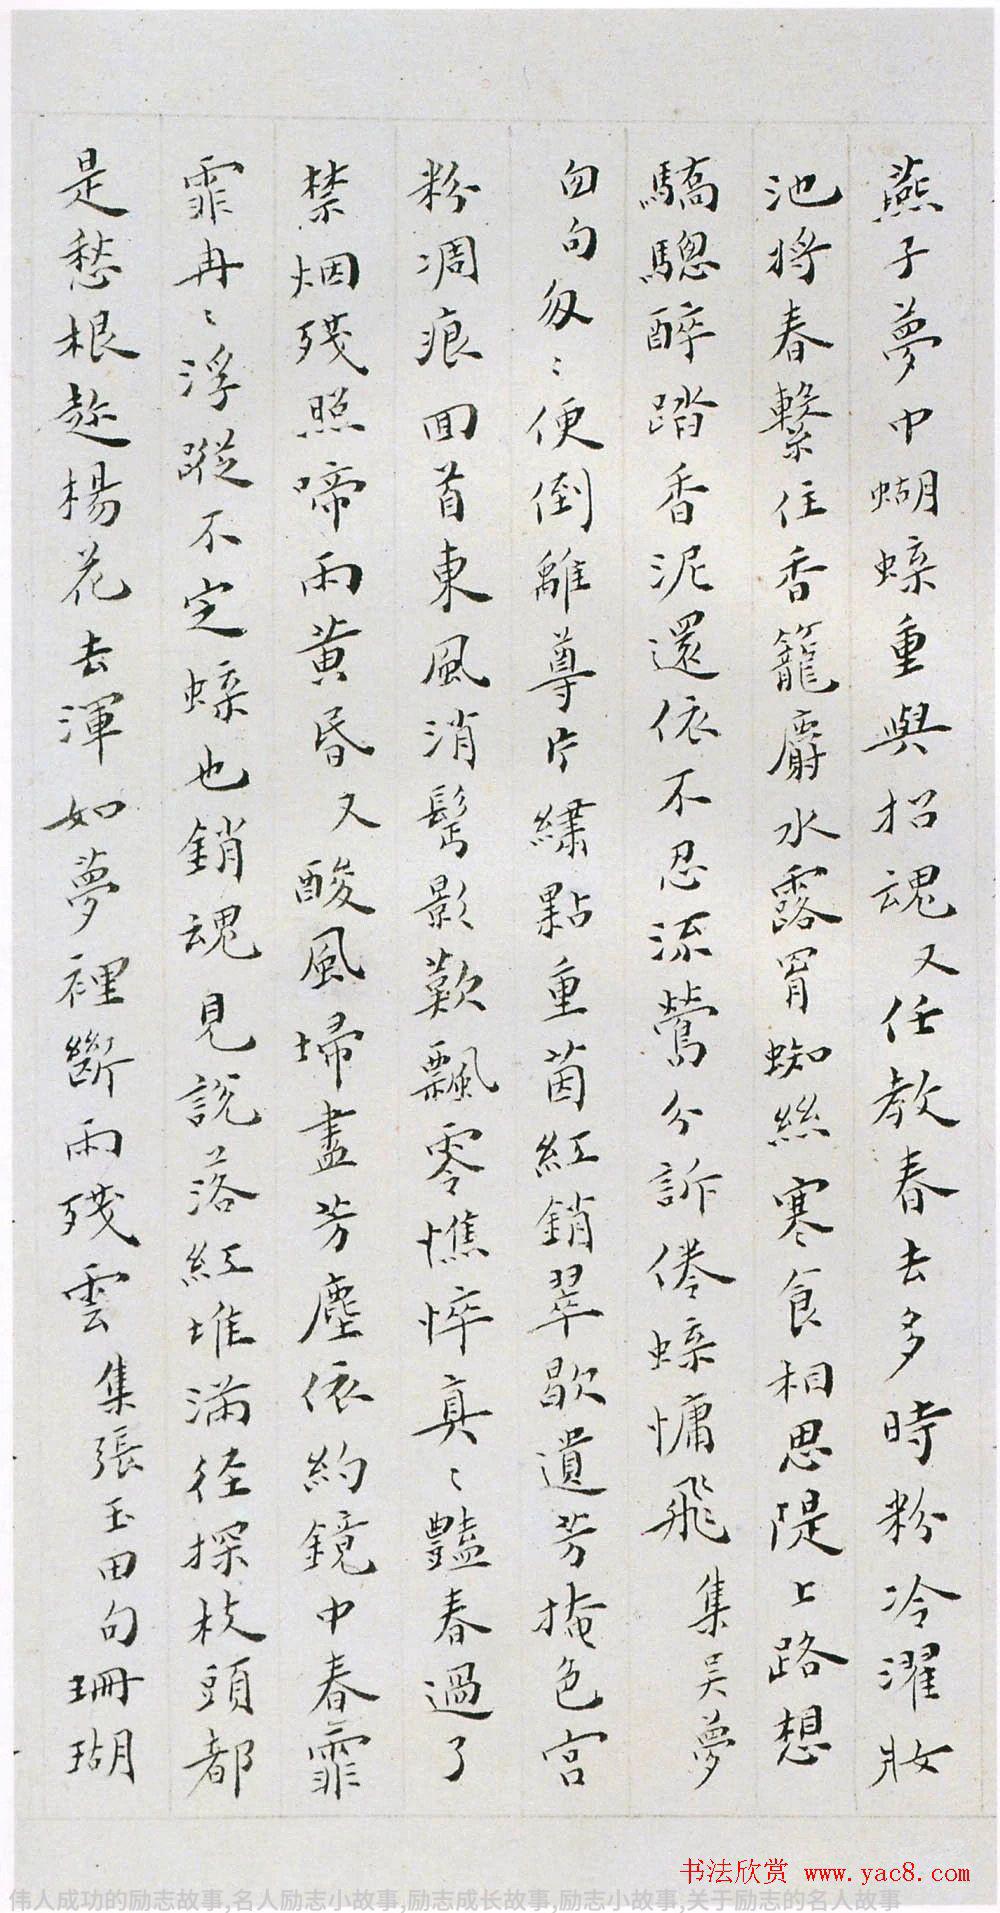 燕子夢中蝴蜨重與招魂又任教春去多時粉冷濯妝
池將春繫住香籠麝水露罥蜘絲寒食相思隄上路想
驕驄醉踏香泥還依不忍流鶯分訴倦蜨慵飛集吳夢
勿句匆〻便倒離尊片繡點重茵紅銷翠歇遺芳掩色宮
粉凋痕回首東風消鬢影歎飄零憔悴真〻豔春過了
禁烟殘照啼雨黃昏又酸風埽盡芳塵依約鏡中春霏
霏冉〻浮蹤不定蜨也銷魂見說落紅堆滿徑探枝頭都
是愁根趂楊花去渾如夢裡斷雨殘雲集張玉田句珊瑚
书法欣赏 www.yac8.com
伟人成功的励志故事,名人励志小故事,励志成长故事,励志小故事,关于励志的名人故事